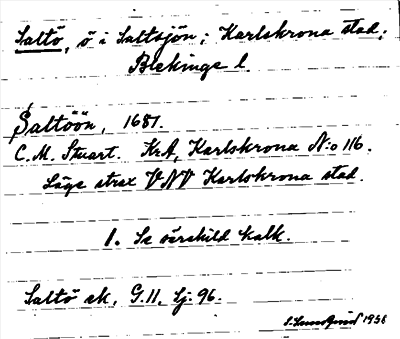 Saltö, ö i Saltsjön; Karlskrona stad,
Blekinge l.
Saltöön, 1687.
C.M. Stuart. KrA, Karlskrona N:o 116.
Läge strax VNV Karlskrona stad.
1. Se särskild kalk.
Saltö ek, G.11, Lj.96.
S. Lundquist 1936